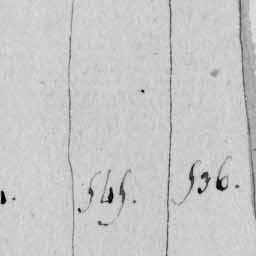 545. 536.